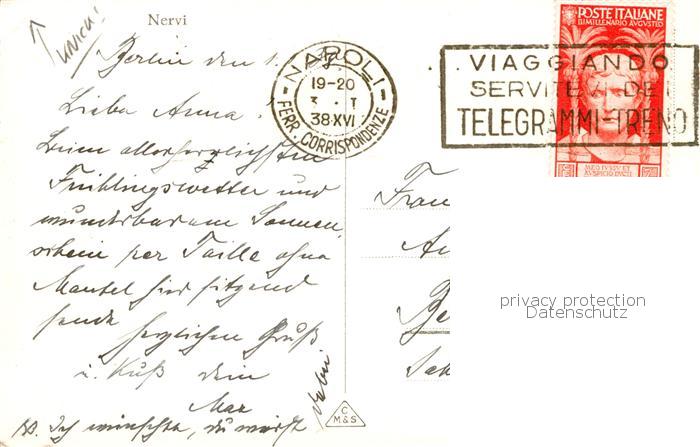 Nervi
Berlin den 1.
Liebe Anna!
Beim allerherrlichsten
Frühlingswetter und
wunderbarem Sonnen
schein per Taille ohne
Mantel hier sitzend
sende
herzlichen Gruß
u. Kuß Dein
Max
Ich wünschte, du wärst
dabei
NAPOLI
19-20
38XVI
FERR. CORRISPONDENZE
VIAGGIANDO
SERVITEVI DEI
TELEGRAMMI-TRENO
POSTE ITALIANE
BIMILLENARIO AUGUSTEO
MEO IVSSV ET
AVSPICIO DVCTV
Frau
privacy protection
Datenschutz
C
M&S